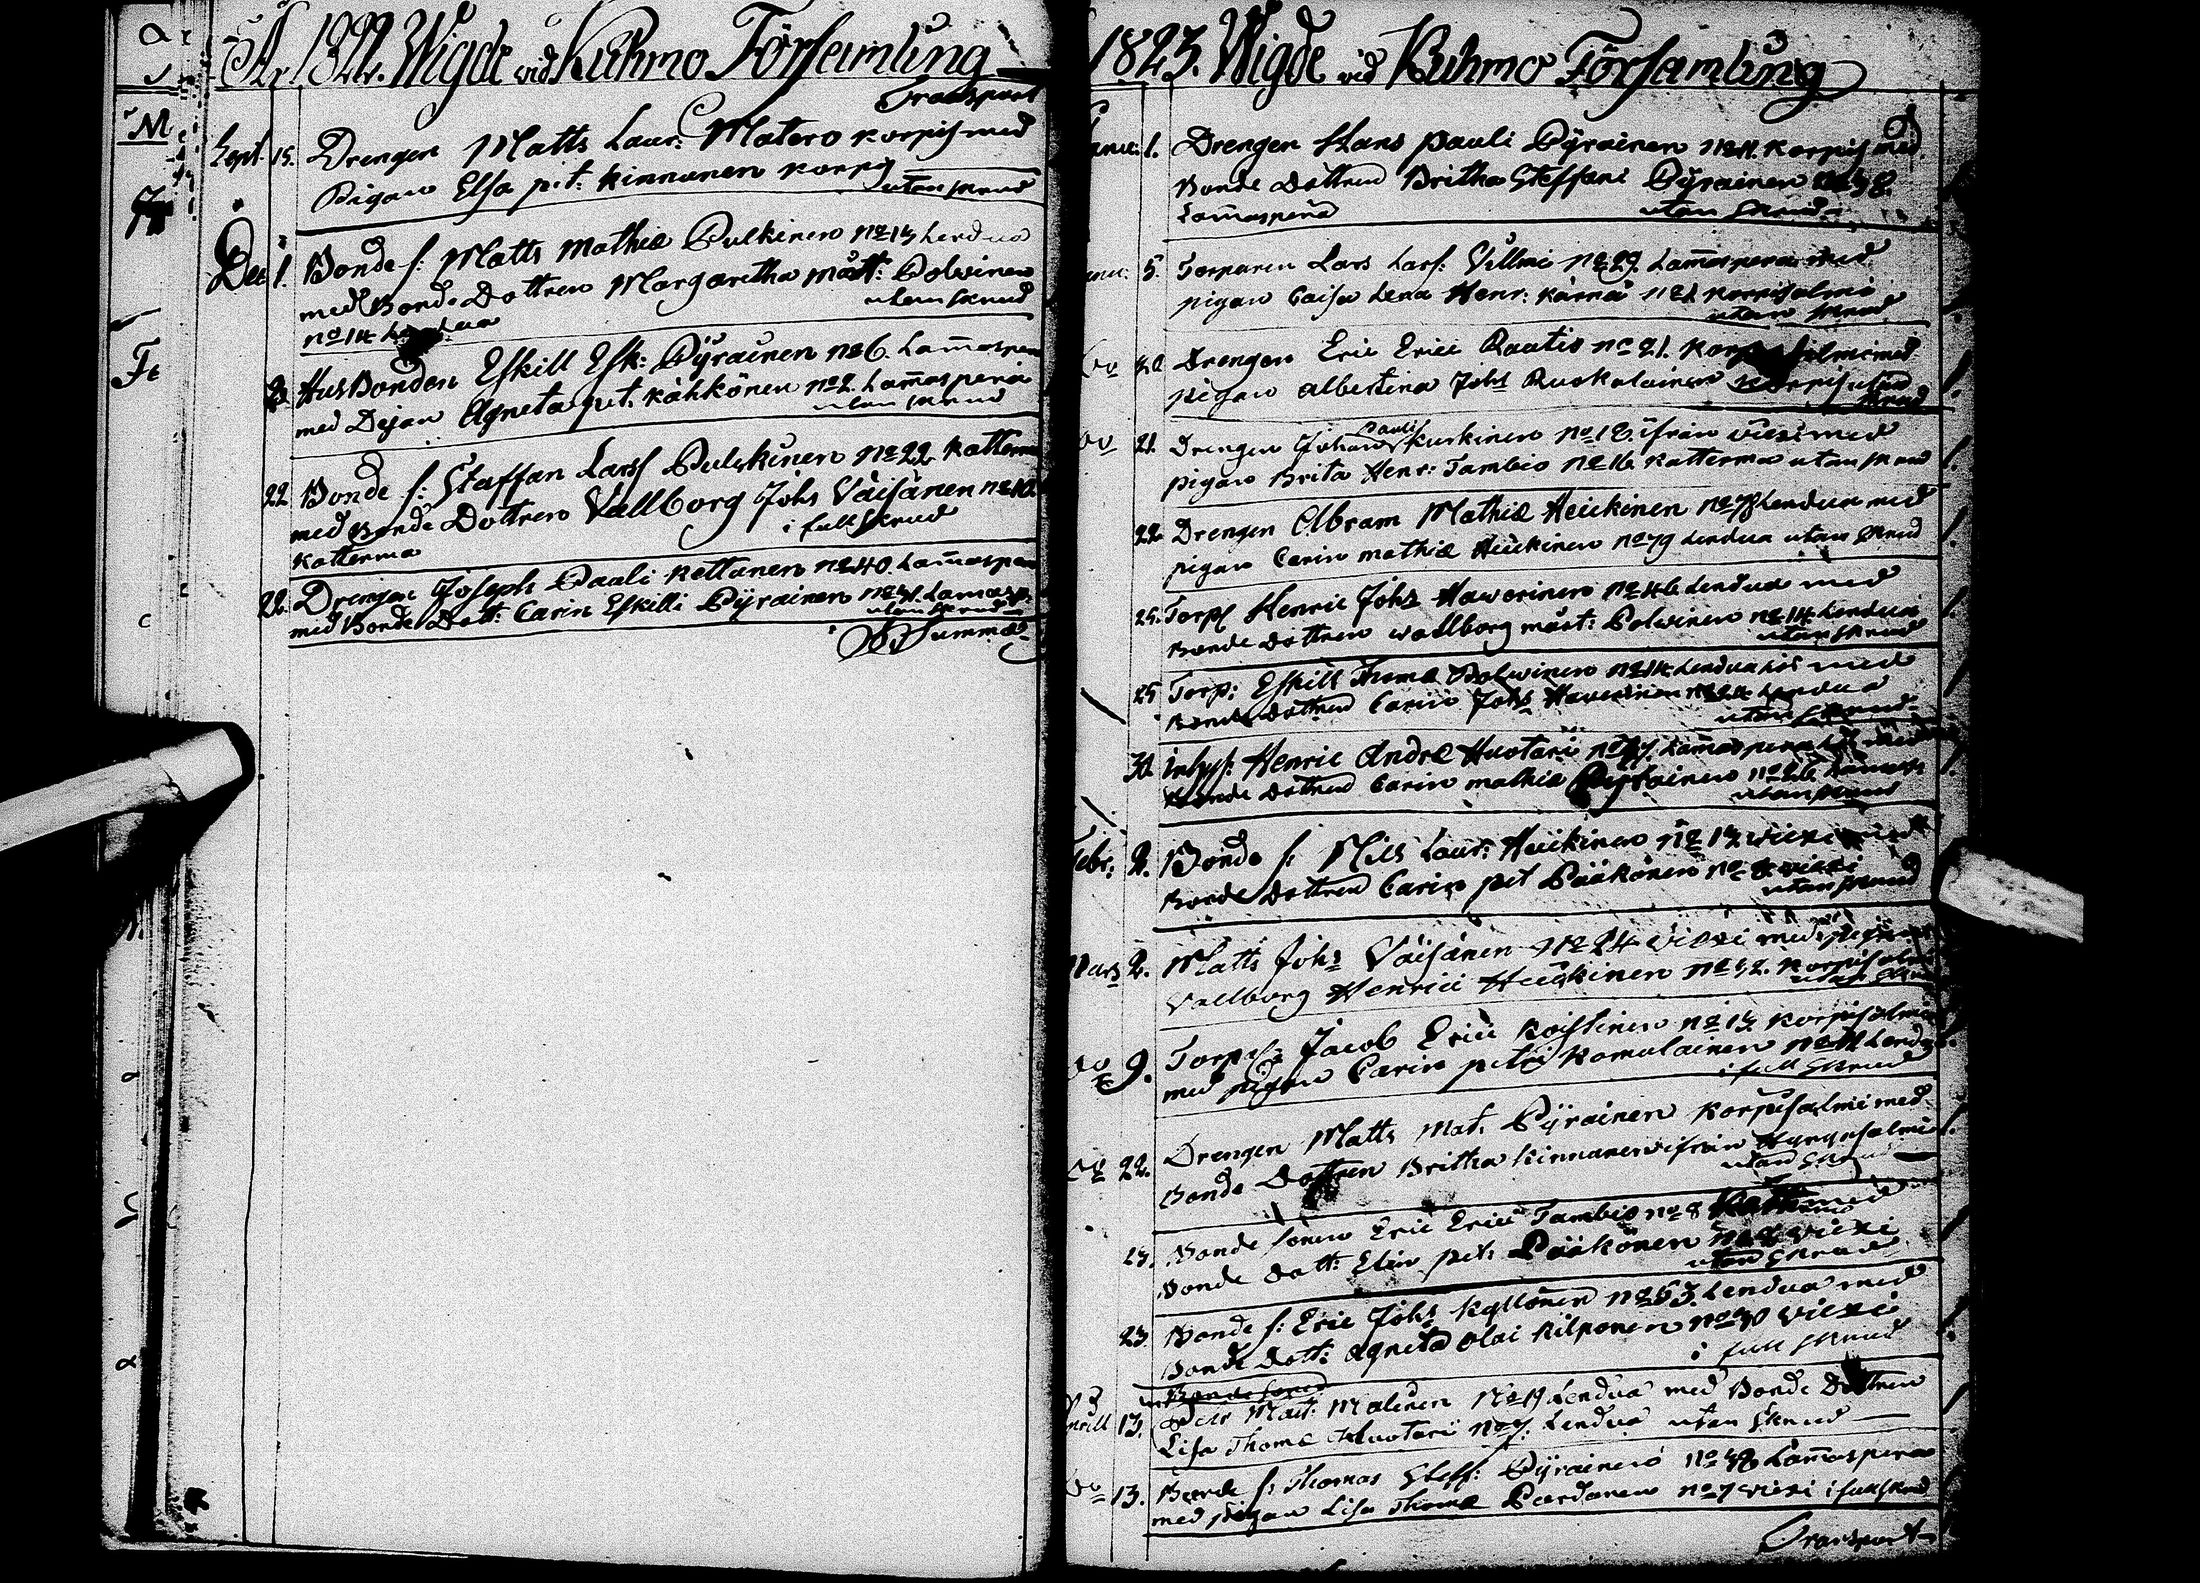 År 1822. Wigde vid Kuhmo Församling
Transport
Sept. 15. Drengen Matts Laur: Matero Korpis med
Pigan Elsa pet: Kinnunen Korpis
utan skrud
Dec 1. Bonde s: Matts Mathiæ Pulkinen No 13 Lendua
med Bonde Dottren Margaretha Mårt: Polvinen
No 14 utan skrud
8. Husbonden Eskill Esk: Pÿrainen No 6. Lam̄aspera
med Dejan Agneta pet. Kähkönen No 2. Lam̄aspera
utan skrud
22 Bonde s: Staffan Larss Pulkkinen No 22 Katterma
med Bonde Dottren Vallborg Johs Väisänen No 10.
Katterma i full skrud
22. Drengen Joseph Pauli Kettunen No 40. Lam̄aspera
med Bonde Dott: Carin Eskilli Pÿrainen Lam̄asp.
utan skrud
Summa
1823. Wigde vid Kuhmo Församling
Janu: 1. Drengen Hans Pauli Pÿrainen No 11. Korpis med
Bonde Dottren Britha Steffani Pÿrainen No 38
Lam̄aspera utan skrud
Janu: 5. Torparen Lars Lars: Villmi No 29. Lam̄aspera med
pigan Caisa Lena Henr: Kärnä No 1 Korpisalmi
utan skrud
Do Drengen Eric Erici Rautio No 21. Korpisalmi med
pigan Albertina Johs Ruokolainen Korpis utan
skrud
Do 21. Drengen Johan Pauli Kurkinen No 18. ifrån Viexi med
pigan Brita Henr: Tambio No 16 Katterma utan skrud
22. Drengen Abram Mathiæ Heickinen No 78 Lendua med
pigan Carin Mathiæ Heickinen No 79 Lendua utan skrud
25. Torps Henric Johs Hawerinen No 46 Lendua med
Bonde Dottren Wallborg Mårt: Polwinen No 14 Lendua
utan skrud
25 Torp: Eskill Thomæ Polwinen No 14 Lendua med
Bonde Dottren Carin Johs Hawerinen Lendua
utan skrud
30. Inhys: Henric Andræ Huotari Lam̄aspera med
Bonde Dottren Carin Mathiæ No 26 Lam̄asp
utan skrud
Febr: 2. Bonde s: Nils Laur: Heickinen No 13 Wiexi med
Bonde Dottren Carin pet Pääkönen No 8 Wiexi
utan skrud
Mars 2. Matts Johs Väisänen No 24 Viexi med pigan
Vallborg Henrici Heickinen No 32. Korpisalmi
utan skrud
Do 9. Torps: Jacob Erici Koistinen No 13 Korpisalmi
med pigan Carin petri Komulainen No 11 Lendua
i full skrud
Do 22. Drengen Matts Mat. Pÿrainen Korpisalmi med
Bonde Dottren Britha Kinnunen ifrån Hyrynsalmi
utan skrud
23. Bonde sonen Eric Erici Tambio No 8 Katt: med
Bonde Dott: Elin pet: Pääkönen No 8 Wiexi
utan skrud
23. Bonde s: Eric Johs Kyllönen No 63. Lendua med
Bonde Dott: Agneta Olai Kilponen No 30 Viexi
i full skrud
Bonde sonen
April 13. Petr Matt: Malinen No 19 Lendua med Bonde Dottren
Lisa Thomæ Huotari No 7. Lendua utan skrud
Do 13. Bonde s: Thomas Steff: Pÿrainen No 38 Lam̄aspera
med pigan Lisa Thomæ Pardanen No 7 Wiexi i full skrud
Transport